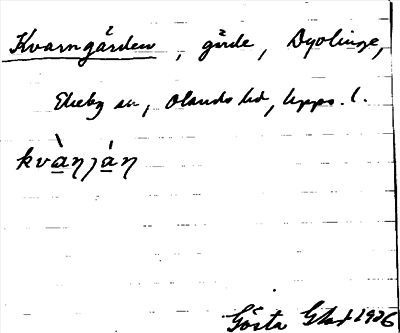 Kvarngården, gärde, Dyolinge,
Ekeby sn, Olands hd, Upps. l.
kvàŋján
Gösta Glad 1926